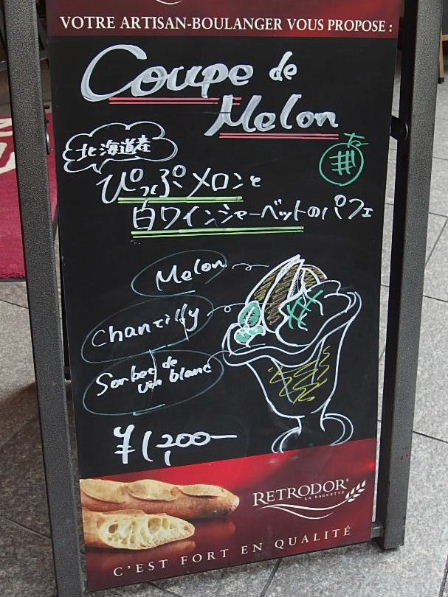 VOTRE ARTISAN-BOULANGER VOUS PROPOSE :
Coupe de
Melon
北海道産
ぴっぷメロンと
白ワインシャーベットのパフェ
Melon
Chantilly
Sorbet de
vin blanc
¥1,200-
RETRODOR
LA BAGUETTE
C'EST FORT EN QUALITÉ